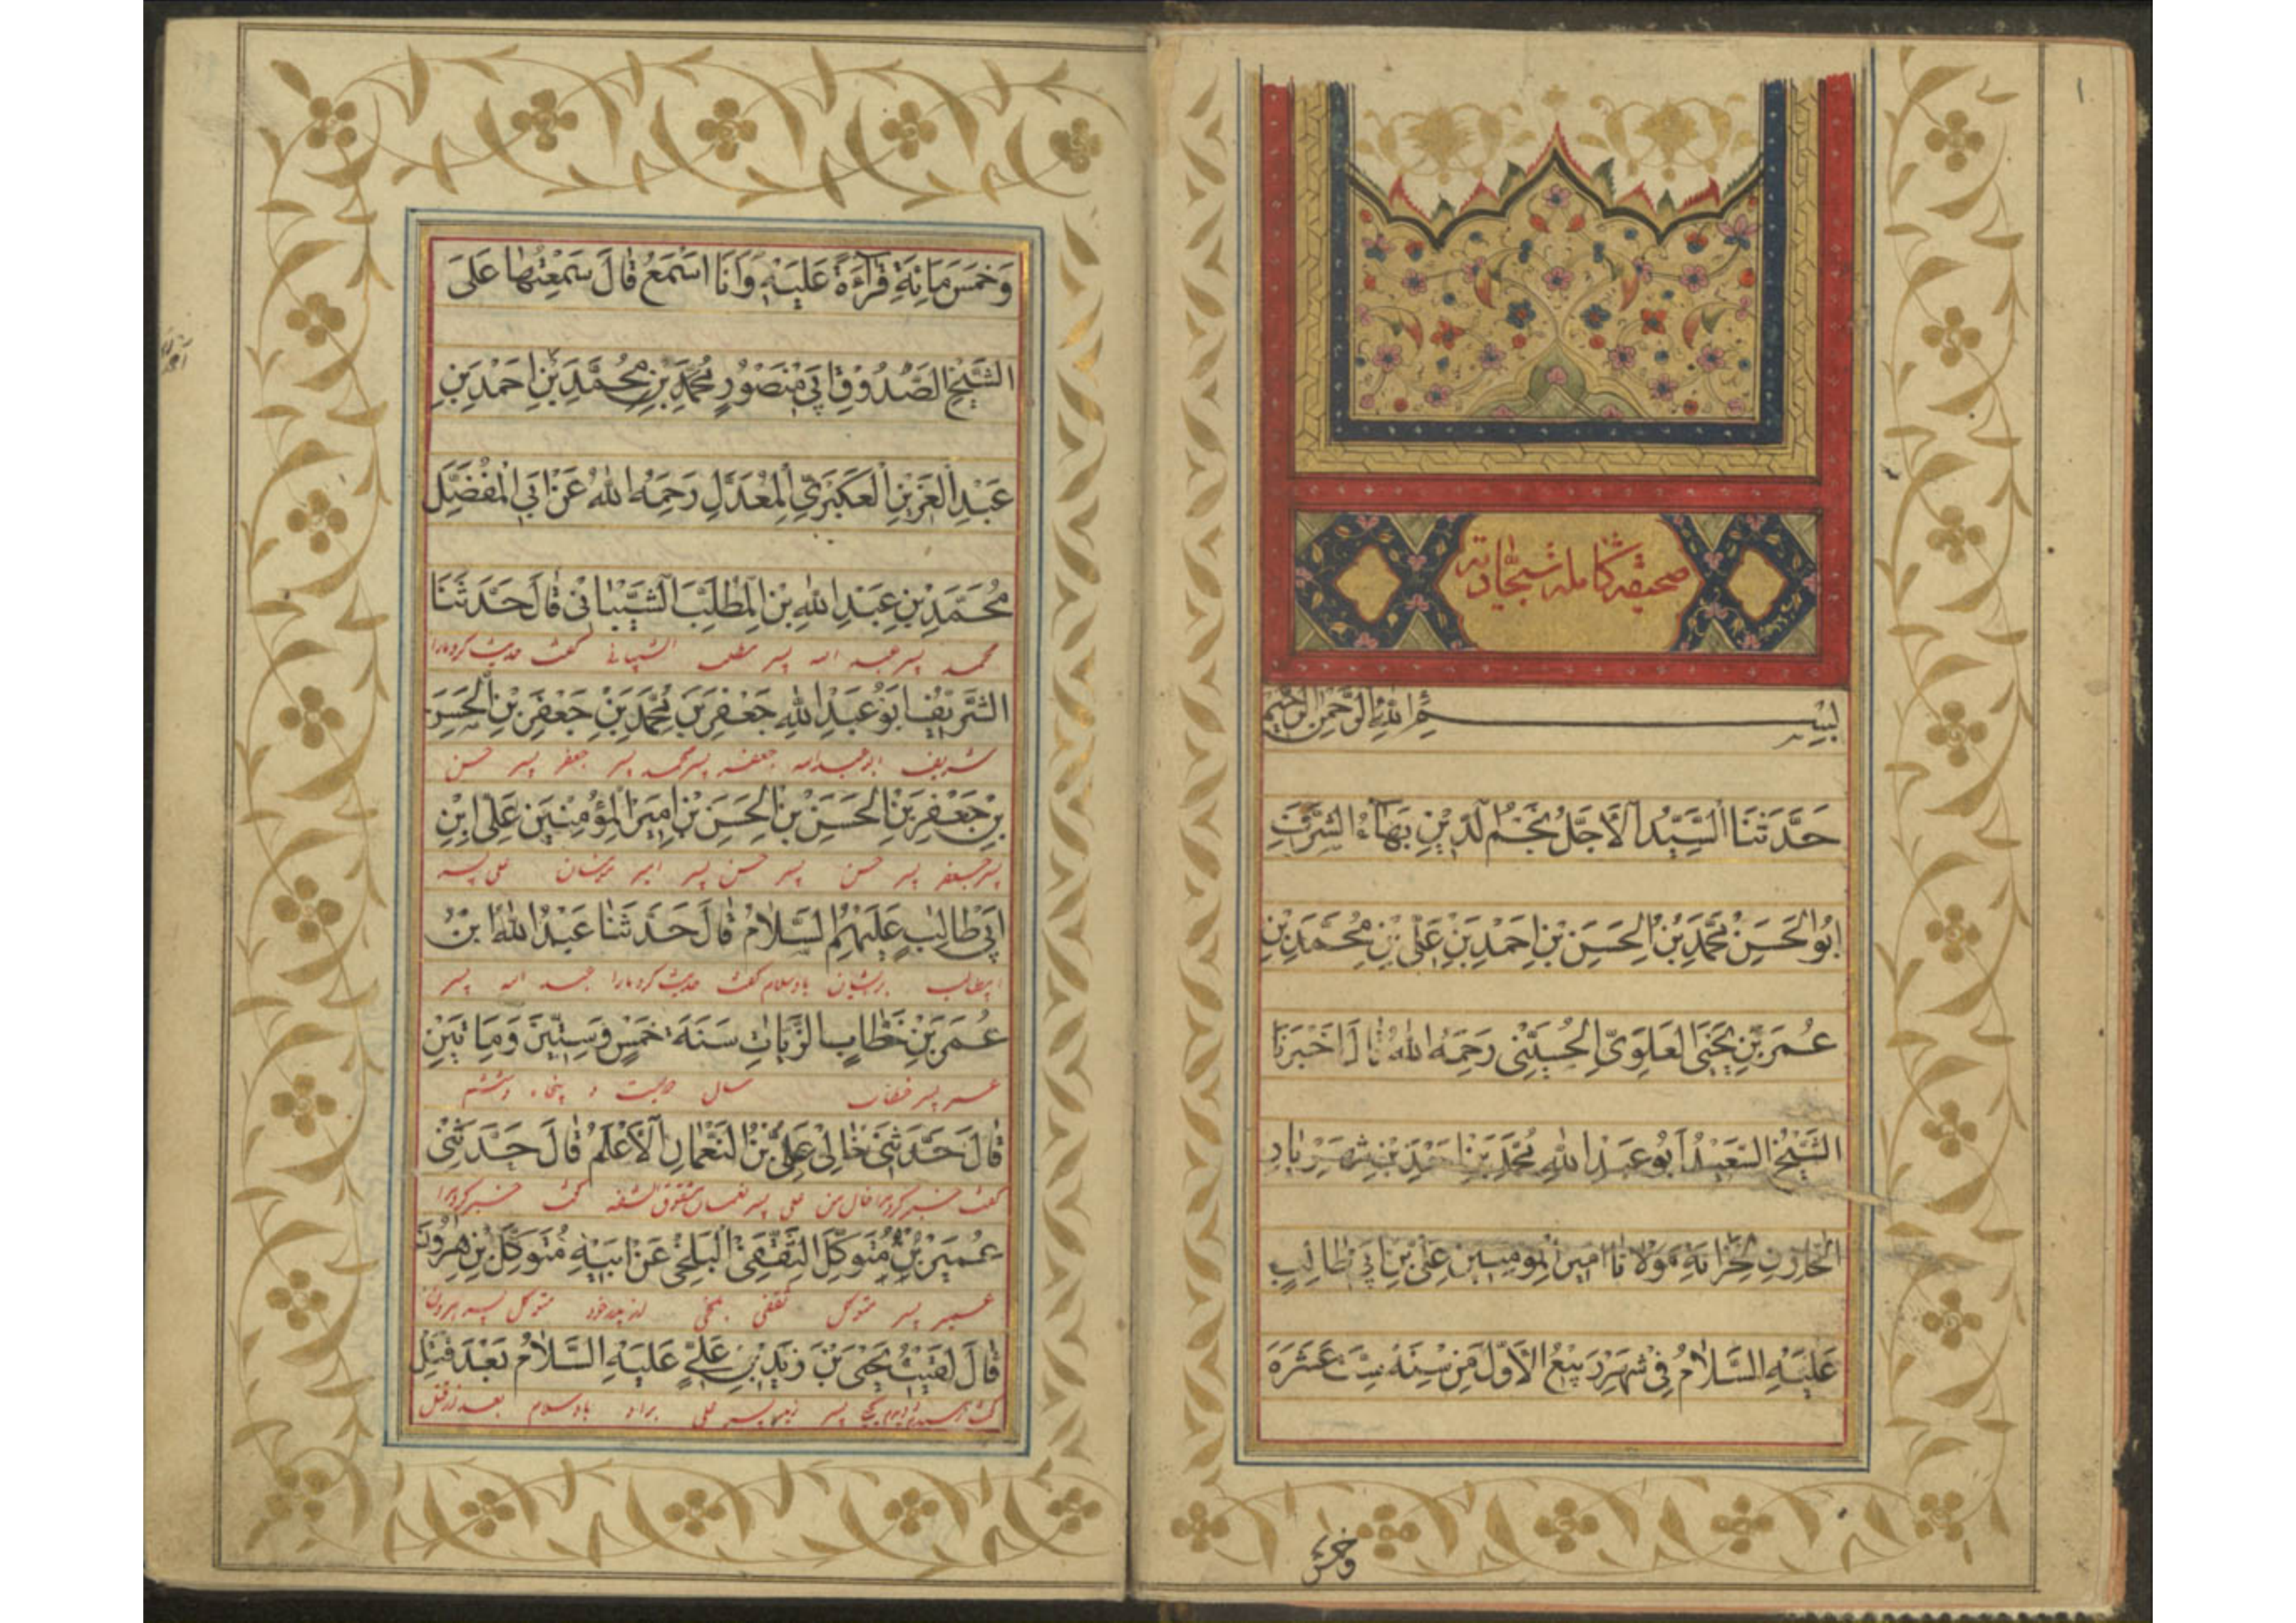 ۱
صحیفه کامله سجادیه
بِسْمِ اللهِ الرَّحْمٰنِ الرَّحِيمِ
حَدَّثَنَا السَّيِّدُ الْأَجَلُّ نَجْمُ الدِّينِ بَهَاءُ الشَّرَفِ
اَبُو الْحَسَنِ مُحَمَّدُ بْنُ الْحَسَنِ بْنِ اَحْمَدَ بْنِ عَلِيِّ بْنِ مُحَمَّدِ بْنِ
عُمَرَ بْنِ يَحْيَى الْعَلَوِيُّ الْحُسَيْنِيُّ رَحِمَهُ اللهُ قَالَ اَخْبَرَنَا
الشَّيْخُ السَّعِيدُ اَبُو عَبْدِ اللهِ مُحَمَّدُ بْنُ اَحْمَدَ بْنِ شَهْرِيَارَ
الْخَازِنُ لِخِزَانَةِ مَوْلَانَا اَمِيرِ الْمُؤْمِنِينَ عَلِيِّ بْنِ اَبِي طَالِبٍ
عَلَيْهِ السَّلَامُ فِي شَهْرِ رَبِيعِ الْأَوَّلِ مِنْ سَنَةِ سِتَّ عَشَرَةَ
وخمس
وَخَمْسَمِائَةٍ قِرَاءَةً عَلَيْهِ وَاَنَا اَسْمَعُ قَالَ سَمِعْتُهَا عَلَى
الشَّيْخِ الصَّدُوقِ اَبِي مَنْصُورٍ مُحَمَّدِ بْنِ مُحَمَّدِ بْنِ اَحْمَدَ بْنِ
عَبْدِ الْعَزِيزِ الْعُكْبَرِيِّ الْمُعَدَّلِ رَحِمَهُ اللهُ عَنْ اَبِي الْمُفَضَّلِ
مُحَمَّدِ بْنِ عَبْدِ اللهِ بْنِ الْمُطَّلِبِ الشَّيْبَانِيِّ قَالَ حَدَّثَنَا
محمد پسر عبد الله پسر مطلب الشیبانی گفت حدیث کرد مارا
الشَّرِيفُ اَبُو عَبْدِ اللهِ جَعْفَرُ بْنُ مُحَمَّدِ بْنِ جَعْفَرِ بْنِ الْحَسَنِ
شریف ابو عبدالله جعفر پسر محمد پسر جعفر پسر حسن
بْنِ جَعْفَرِ بْنِ الْحَسَنِ بْنِ الْحَسَنِ بْنِ اَمِيرِ الْمُؤْمِنِينَ عَلِيِّ ابْنِ
پسر جعفر پسر حسن پسر حسن پسر امیر مؤمنان علی پسر
اَبِي طَالِبٍ عَلَيْهِمُ السَّلَامُ قَالَ حَدَّثَنَا عَبْدُ اللهِ ابْنُ
ابیطالب برایشان باد سلام گفت حدیث کرد مارا عبد الله پسر
عُمَرَ بْنِ خَطَّابٍ الزَّيَّاتُ سَنَةَ خَمْسٍ وَسِتِّينَ وَمِاتَيْنِ
عمر پسر خطاب سال دویست و پنجاه وششم
قَالَ حَدَّثَنِي خَالِي عَلِيُّ بْنُ النُّعْمَانِ الْأَعْلَمُ قَالَ حَدَّثَنِي
گفت خبر کرد مرا خال من علی پسر نعمان شقوق الشفه گفت خبر کرد مرا
عُمَيْرُ بْنُ مُتَوَكِّلٍ الثَّقَفِيُّ الْبَلْخِيُّ عَنْ اَبِيهِ مُتَوَكِّلِ بْنِ هٰرُونَ
عمیر پسر متوکل ثقفی بلخی از پدر خود متوکل پسر هرون
قَالَ لَقِيتُ يَحْيَى بْنَ زَيْدِ بْنِ عَلِيٍّ عَلَيْهِ السَّلَامُ بَعْدَ قَتْلِ
پسر زید پسر علی براو باد سلام بعد از قتل